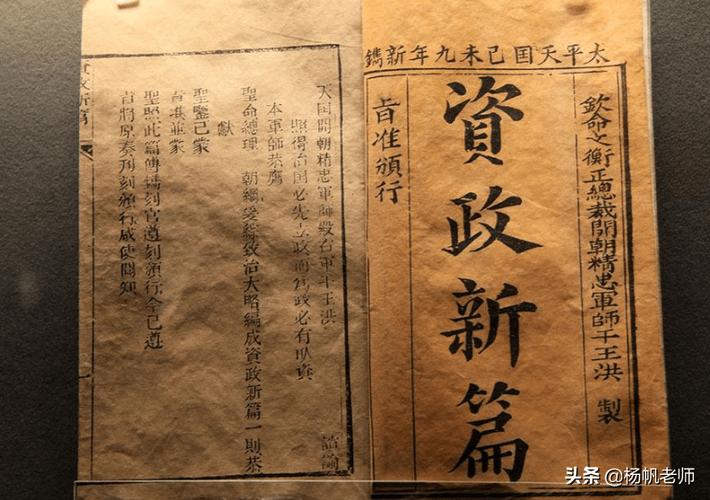 太平天囯己未九年新鐫
欽命文衡正總裁開朝精忠軍師干王洪 製
資政新篇
旨准頒行
天囯開朝精忠軍師殿右軍干王洪
照得治囯必先立政而為政必有取資
本軍師恭膺
聖命總理 朝綱爰綜致治大略編成資政新篇一則恭
獻
聖鑒已蒙
旨准並蒙
聖照此篇傳鐫刻官遵刻頒行今已遵
旨將原奏刋刻頒行咸使聞知
資政新篇
一
头条 @杨帆老师